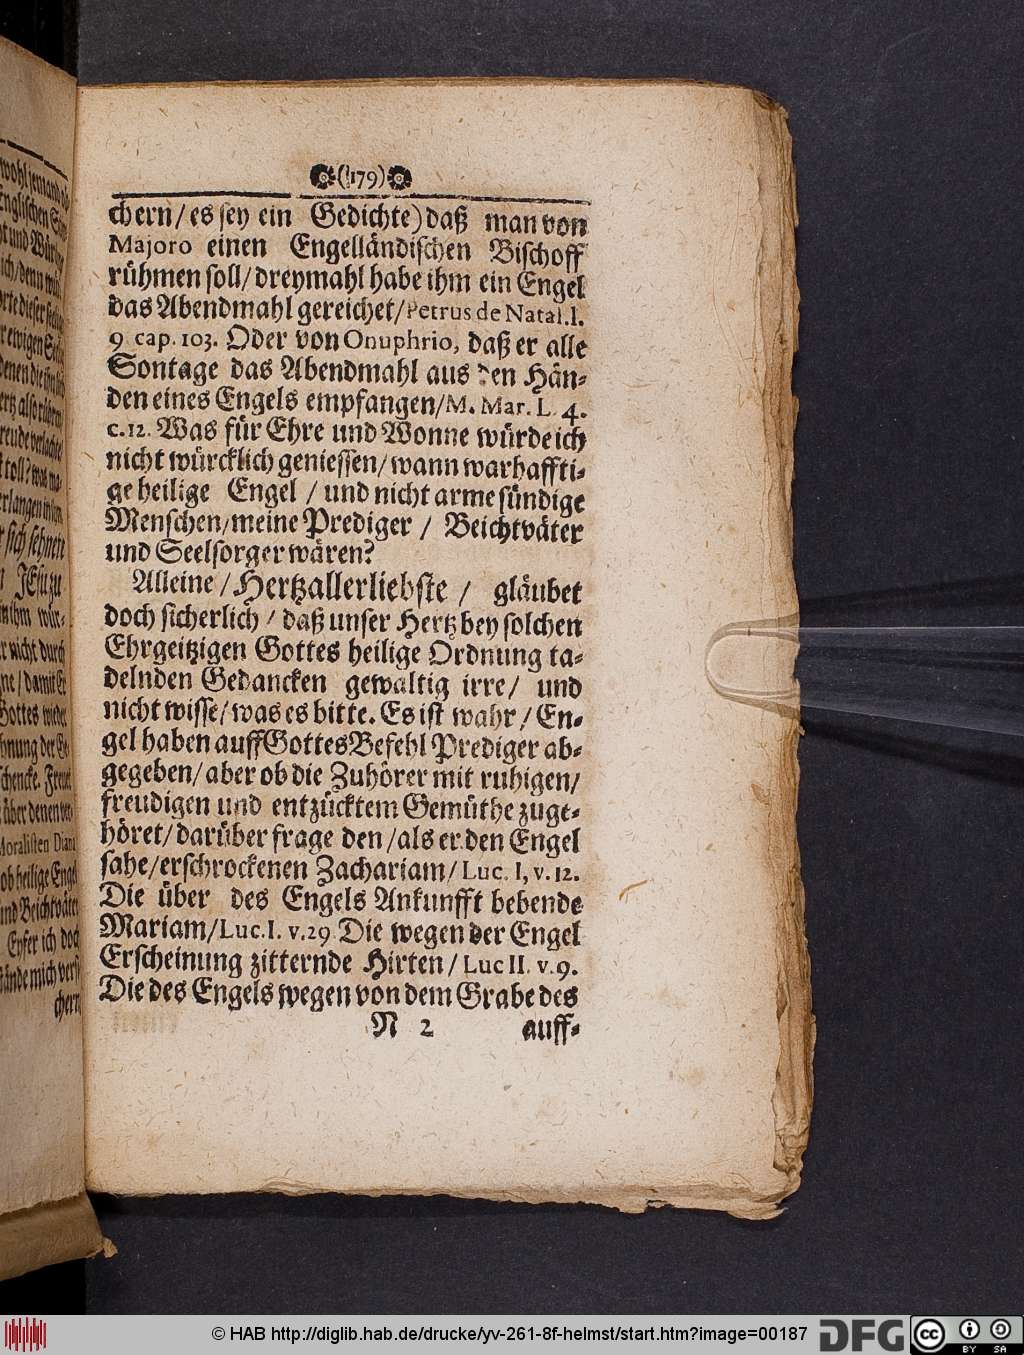 (179)
chern/ es sey ein Gedichte) daß man von
Majoro einen Engelländischen Bischoff
rühmen soll/ dreymahl habe ihm ein Engel
das Abendmahl gereichet/ Petrus de Natal. l.
9 cap. 103. Oder von Onuphrio, daß er alle
Sontage das Abendmahl aus den Hän-
den eines Engels empfangen/ M. Mar. L. 4.
c. 12. Was für Ehre und Wonne würde ich
nicht würcklich geniessen/ wann warhaffti-
ge heilige Engel / und nicht arme sündige
Menschen/ meine Prediger / Beichtväter
und Seelsorger wären?
Alleine / Hertzallerliebste / gläubet
doch sicherlich / daß unser Hertz bey solchen
Ehrgeitzigen Gottes heilige Ordnung ta-
delnden Gedancken gewaltig irre/ und
nicht wisse/ was es bitte. Es ist wahr / En-
gel haben auff Gottes Befehl Prediger ab-
gegeben/ aber ob die Zuhörer mit ruhigen/
freudigen und entzücktem Gemüthe zuge-
höret/ darüber frage den / als er den Engel
sahe/ erschrockenen Zachariam/ Luc. I, v. 12.
Die über des Engels Ankunfft bebende
Mariam/ Luc. I. v. 29 Die wegen der Engel
Erscheinung zitternde Hirten / Luc II. v. 9.
Die des Engels wegen von dem Grabe des
N 2 auff-
© HAB http://diglib.hab.de/drucke/yv-261-8f-helmst/start.htm?image=00187 DFG cc BY SA